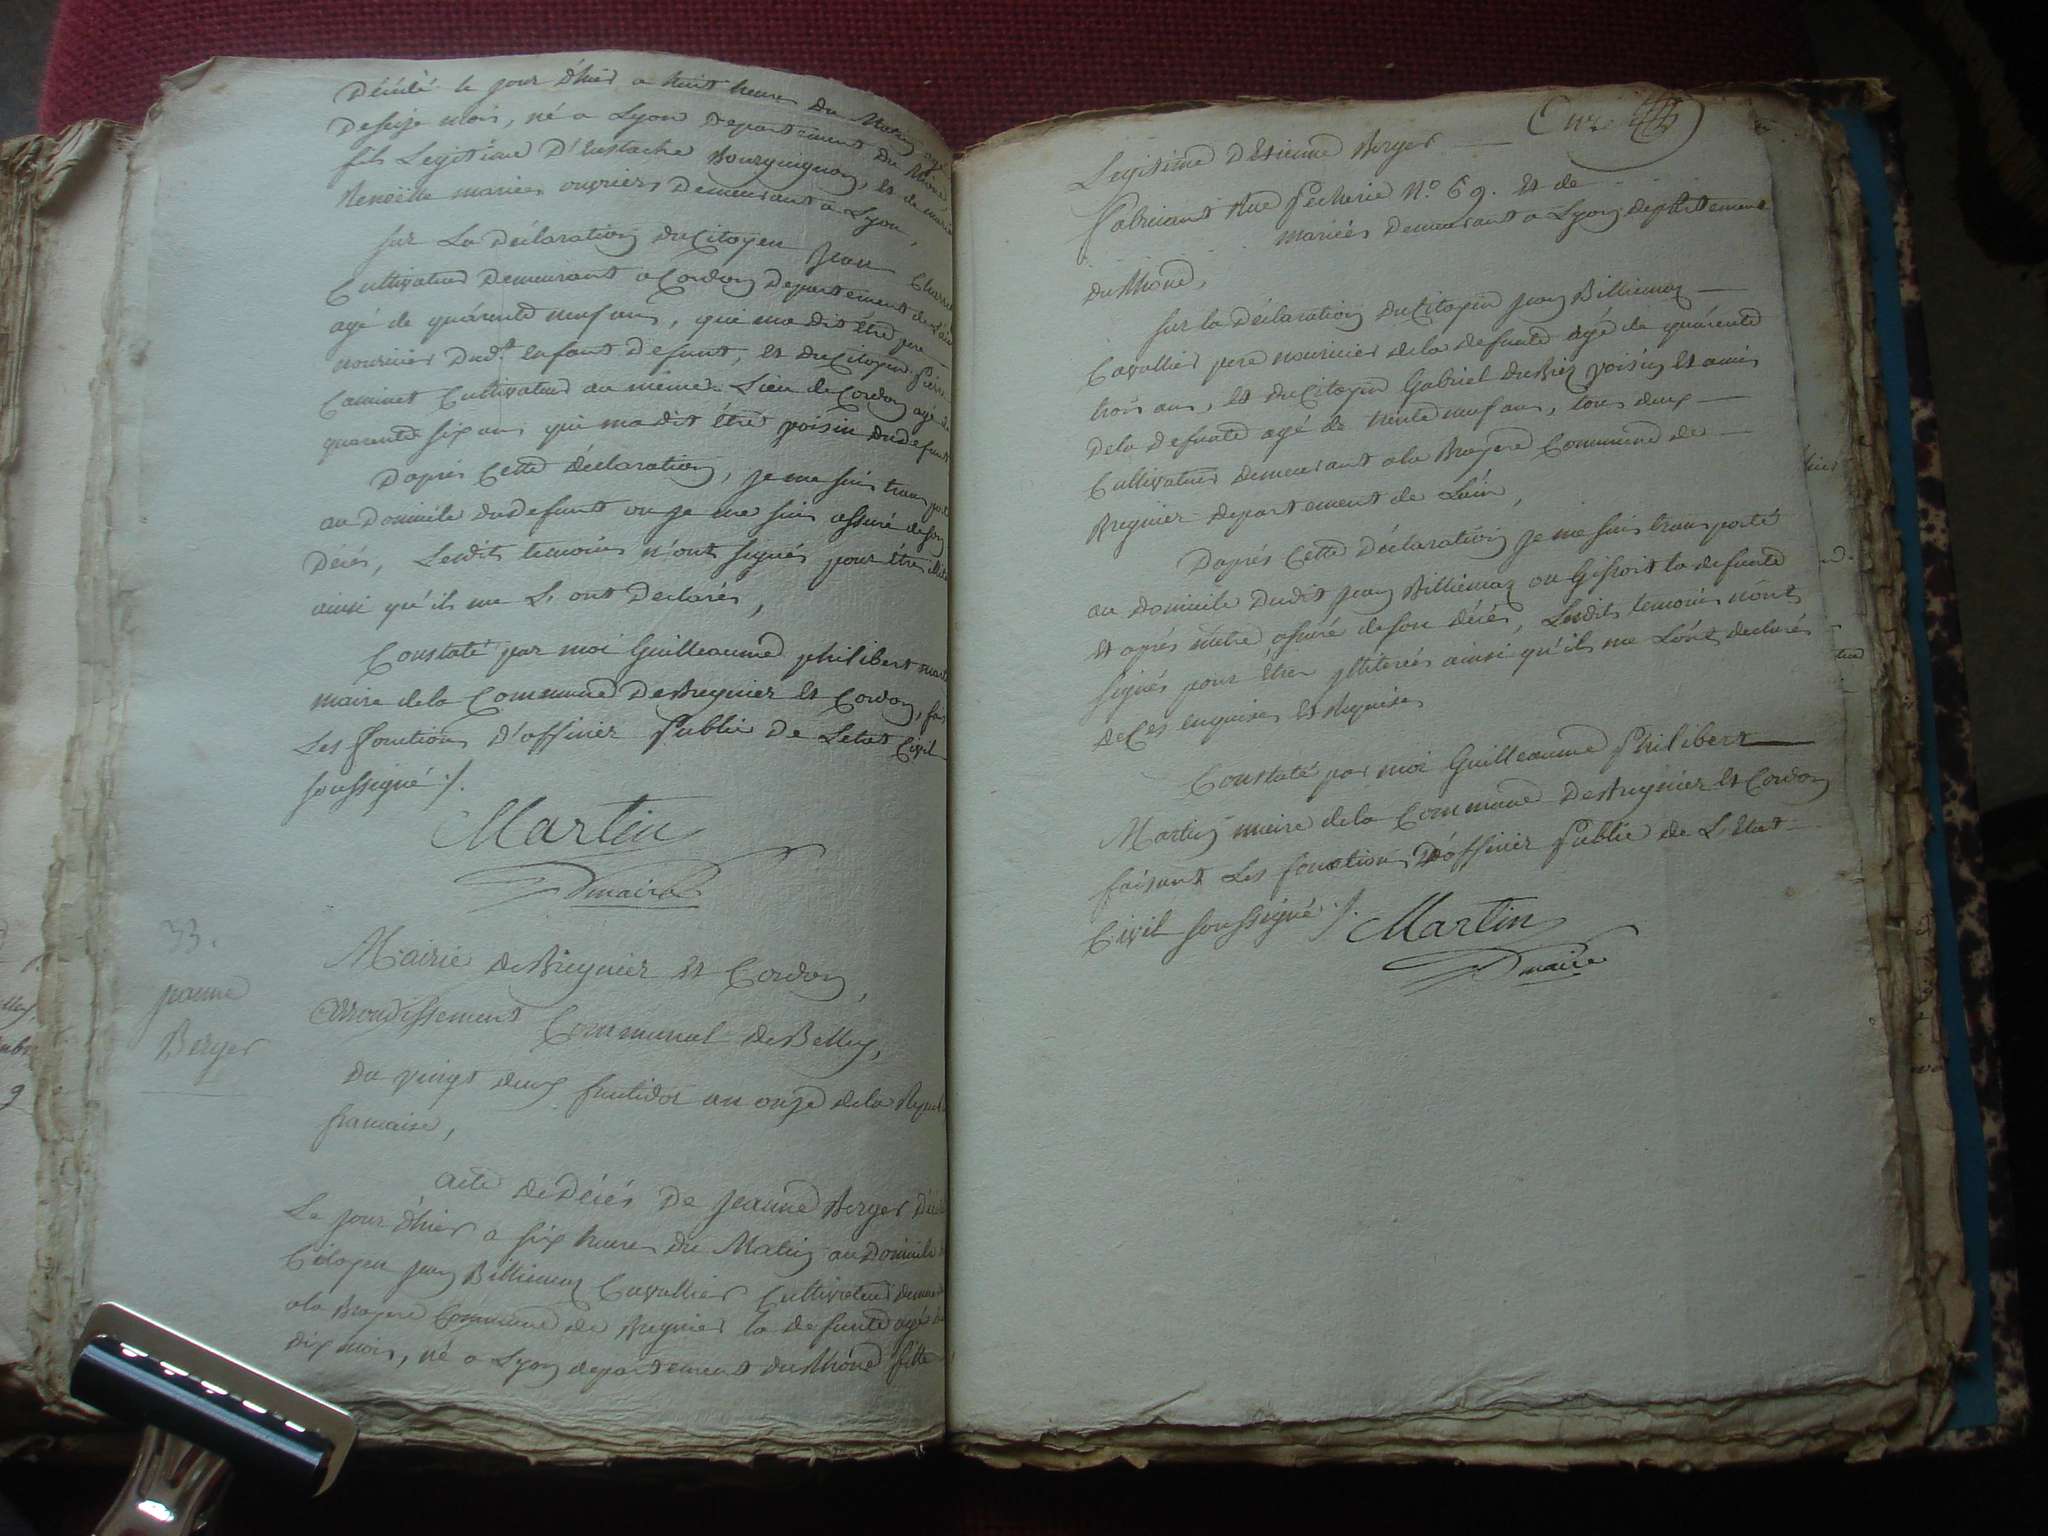 Décédé le jour d'hier a huit heures du Matin agé
de seize mois, né a Lyon departement du Rhone,
fils Legitime D'Eustache Bourguignon, et de marie
mariées ouvriers Demeurant a Lyon,
sur La Déclaration du Citoyen Jean
Cultivateur Demeurant a Cordon Departement de L'ain
agé de quarente neuf ans, qui ma dit être pere
nouricier dudt. enfant defunt, et du Citoyen Pierre
Caminet Cultivateur au même Lieu de Cordon agé de
quarente six ans qui ma dit être voisin du defunt
D'aprés Cette déclaration, je me suis transporté
au Domicile du defunt ou je me suis assuré de son
Décés, Lesdits temoins n'ont signés pour être
ainsi qu'ils me L'ont Declarés,
Constaté par moi Guilleaume philibert
maire de la Commune De Bregnier et Cordon,
Les fonctions D'officier Public de Letat Civil
soussigné ./.
Martin
maire
33.
jeanne
Berger
Mairie de Bregnier et Cordon,
Arrondissement Communal de Belley,
du vingt deux fructidor an onze de la
francaise,
acte de Décés de jeanne Berger
Le jour d'hier a six heures du Matin au Domicile
Citoyen jean Billiemaz Cavallier Cultivateur
a la Brayere Commune de Bregnier la defunte agée de
dix mois, né a Lyon departement du Rhône fille
Legitime D'Etienne Berger
fabricant Rue Pecherie No. 69. et de
mariées Demeurant a Lyon departement
du Rhône,
sur la Déclaration du Citoyen jean Billiemaz
Cavallier pere nouricier de la defunte agé de quarente
trois ans, et du Citoyen Gabriel voisin et amis
de la defunte agé de trente neuf ans, tous deux
Cultivateurs demeurant a la Brayere Commune de
Bregnier departement de Lain,
D'aprés Cette Déclaration je me suis transporté
au Domicile dudit jean Billiemaz ou Gissoit la defunte
et aprés m'être assuré de son décés, Lesdits temoins n'ont
signés pour être ainsi qu'ils me Lont declarés
de Ces enquises et Requises
Constaté par moi Guilleaume Philibert
Martin maire de la Commune De Bregnier et Cordon
faisant Les fonctions D'officier Public de L'Etat
Civil soussigné ./.
Martin
maire